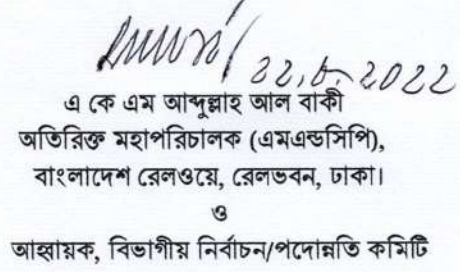 22.6.2022
এ কে এম আব্দুল্লাহ আল বাকী
অতিরিক্ত মহাপরিচালক (এমএন্ডসিপি),
বাংলাদেশ রেলওয়ে, রেলভবন, ঢাকা।
ও
আহ্বায়ক, বিভাগীয় নির্বাচন/পদোন্নতি কমিটি